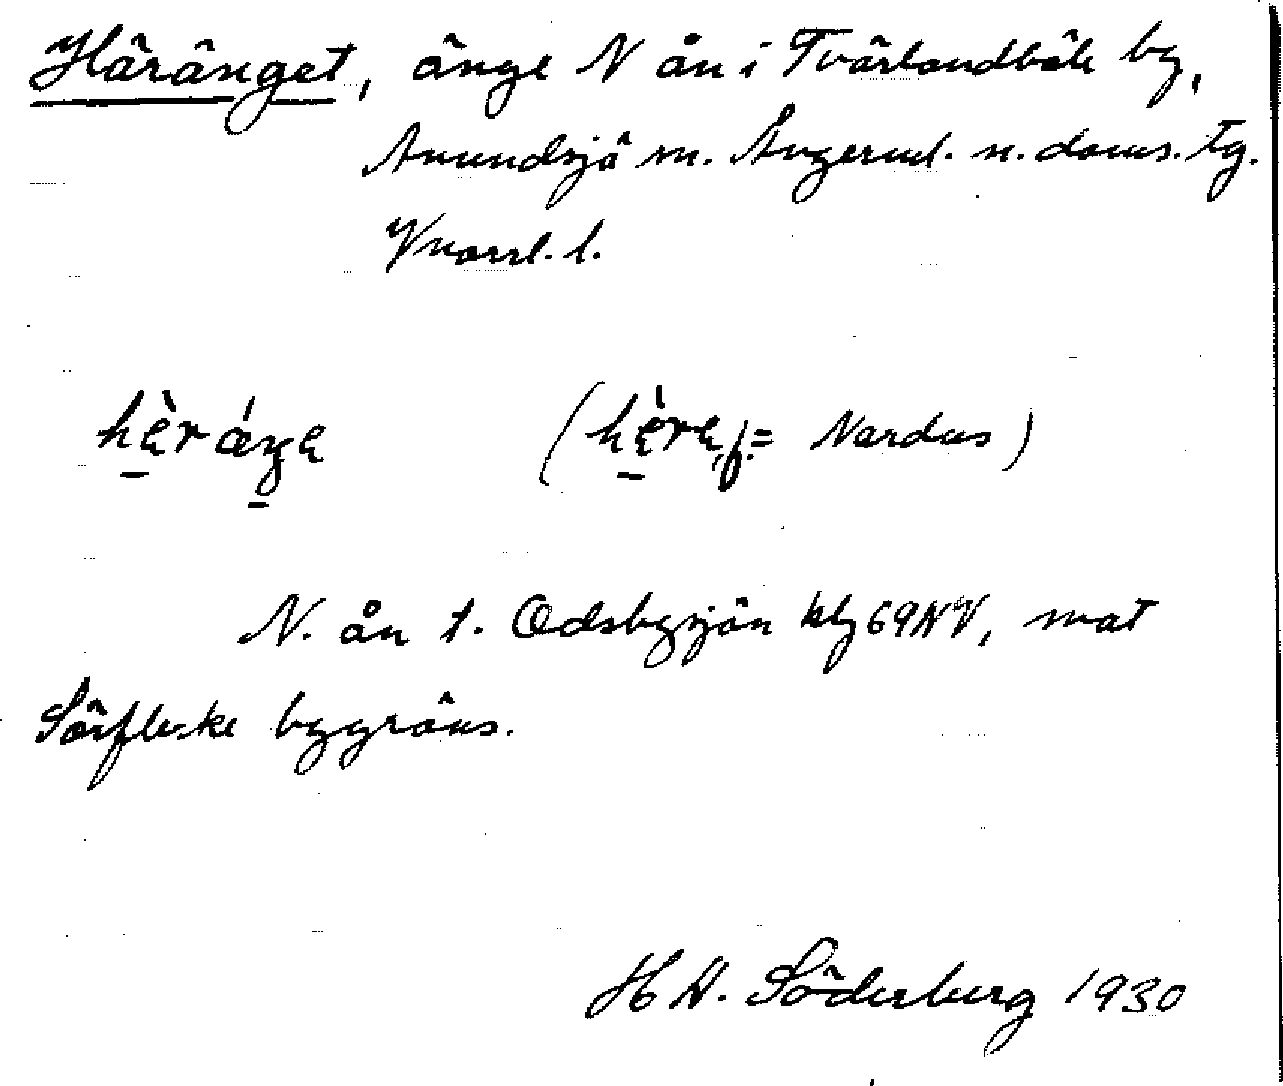 Häränget, änge N ån i Tvärlandböle by,
Anundsjö sn. Ångerml. n. doms. tg.
Vnorrl. l.
hèráŋe (hère, f. = Nardus)
N. ån t. Odsbysjön kbg 69NV, mot
Sörfleske bygräns.
H A. Söderberg 1930